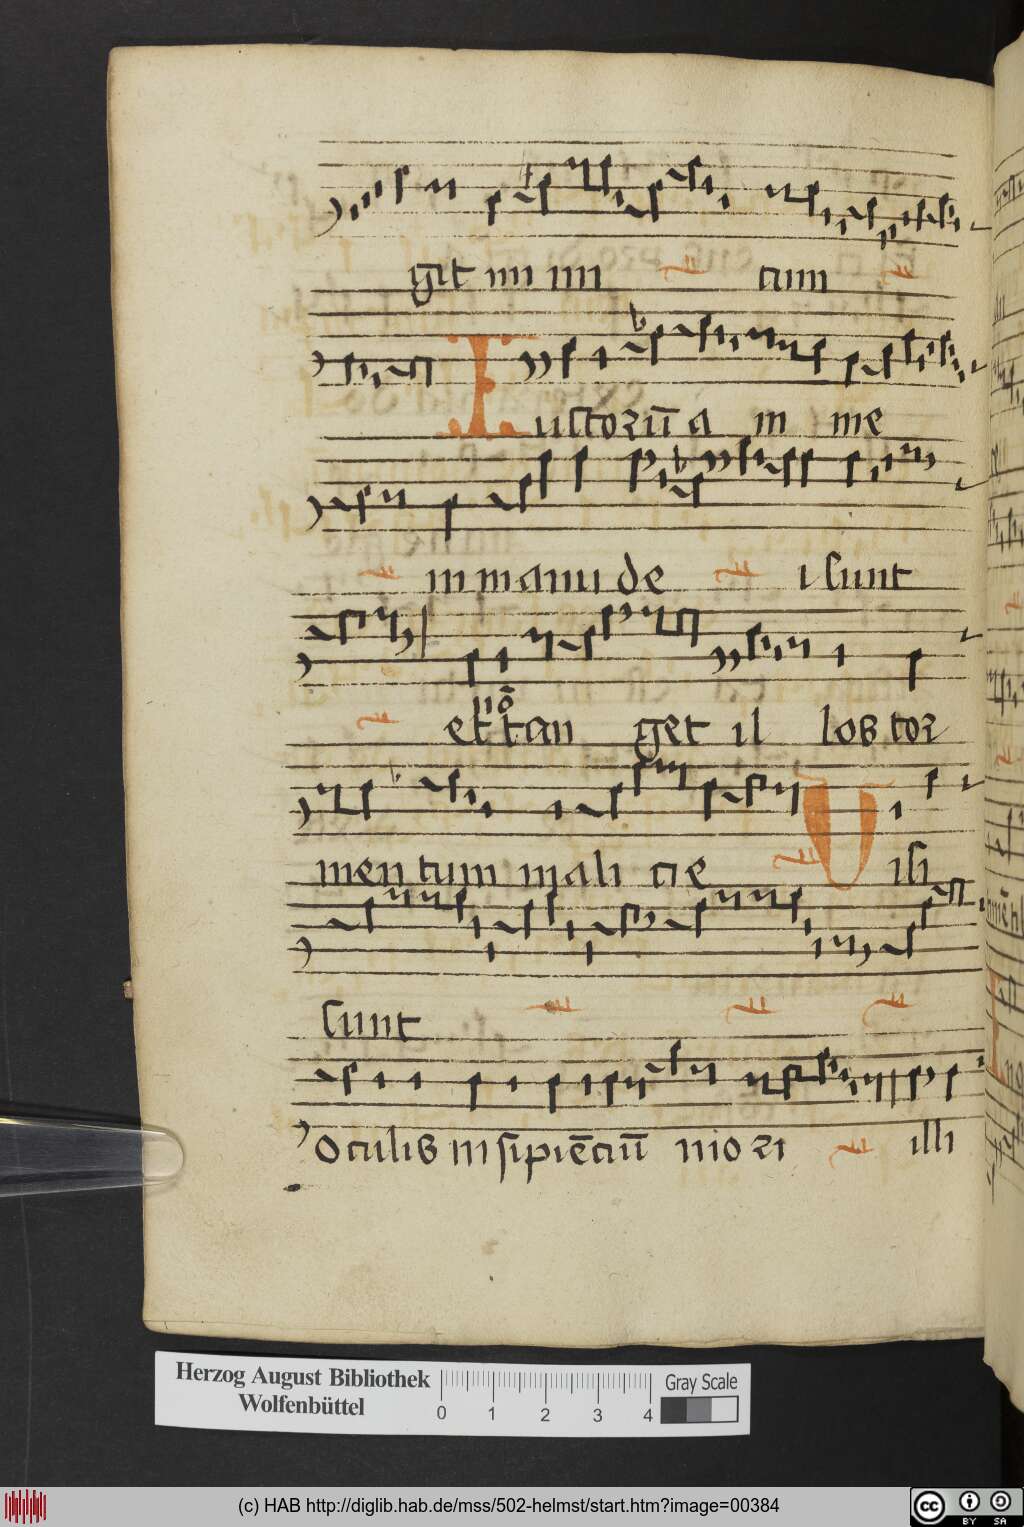 git im im cum
Iustorū a in me
in manu de i sunt
et nō tan get il los tor
men tum mali cie Visi
sunt
Oculis insipiēciū mori illi
Herzog August Bibliothek
Wolfenbüttel
0 1 2 3 4
Gray Scale
(c) HAB http://diglib.hab.de/mss/502-helmst/start.htm?image=00384
cc BY SA